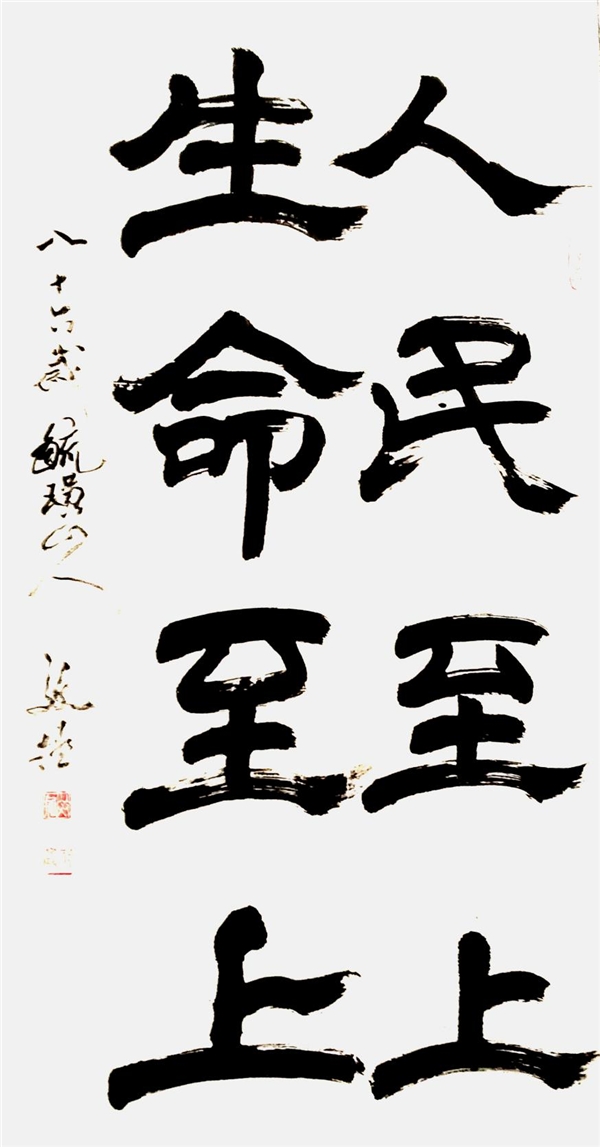 人民至上
生命至上
八十六岁 毓璜山人